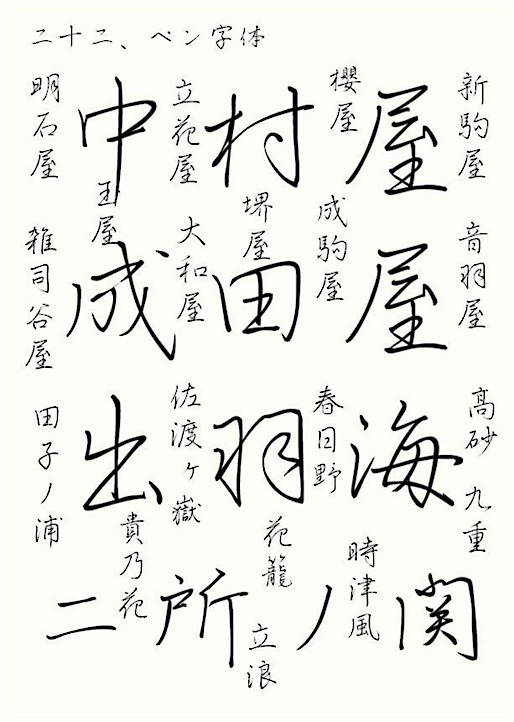 二十二、ペン字体
中村屋
成田屋
出羽海
二所ノ関
明石屋
立花屋
櫻屋
新駒屋
玉屋
堺屋
成駒屋
雑司谷屋
大和屋
音羽屋
田子ノ浦
佐渡ヶ嶽
春日野
高砂
九重
貴乃花
花籠
時津風
立浪